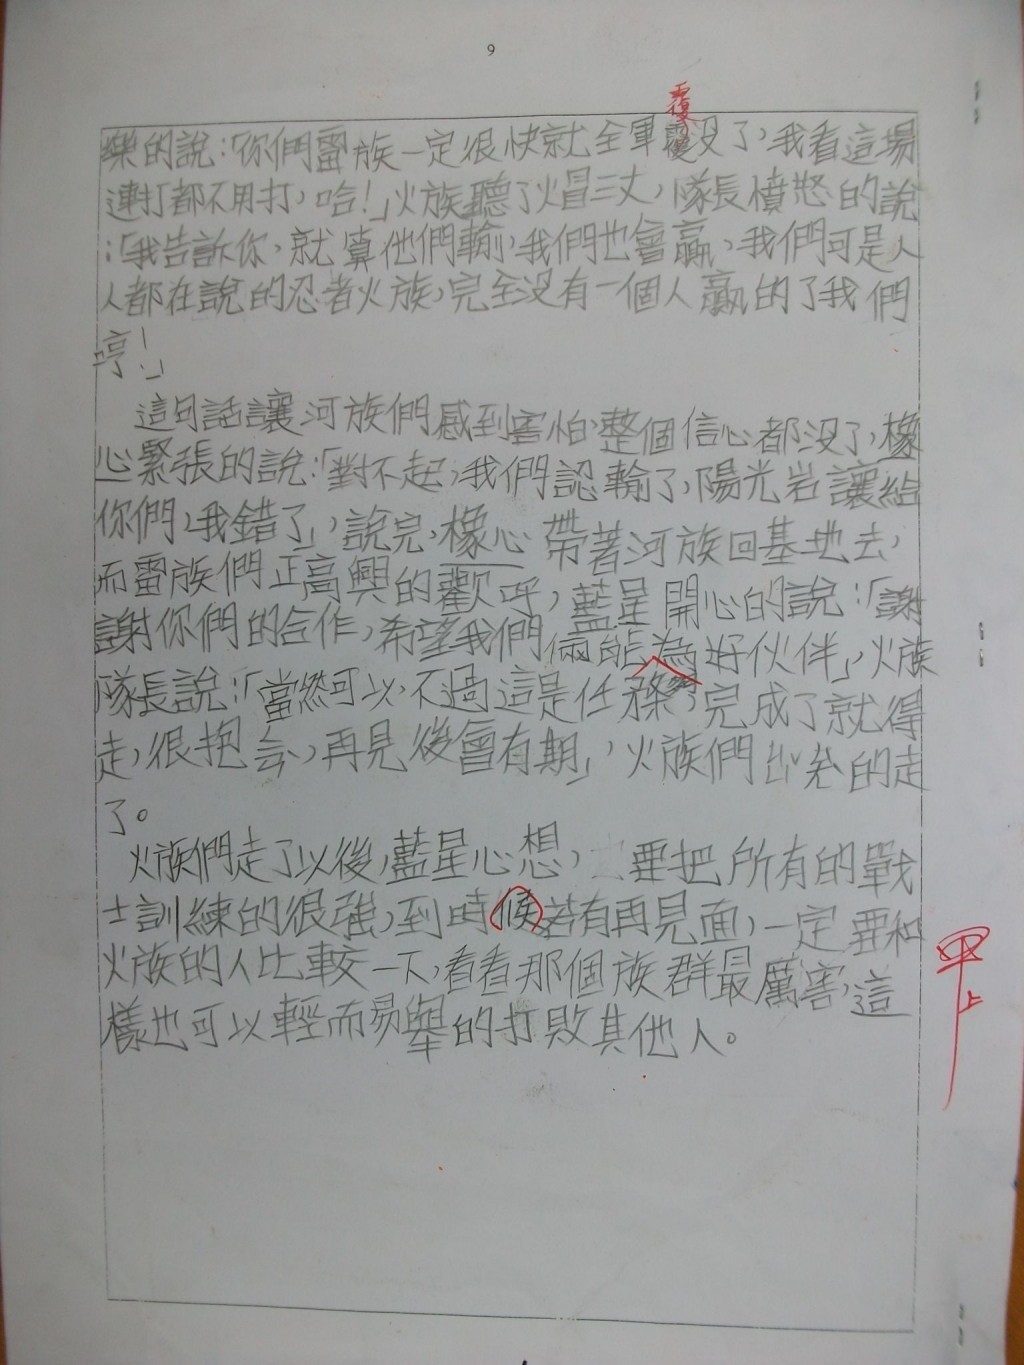 9
覆
樂的說:「你們雷族一定很快就全軍覆没了,我看這場
連打都不用打,哈!」火族聽了火冒三丈,隊長憤怒的說
:「我告訴你,就算他們輸,我們也會贏,我們可是人
人都在說的忍者火族,完全没有一個人贏的了我們
哼!」
這句話讓河族們感到害怕,整個信心都没了,橡
心緊張的說:「對不起,我們認輸了,陽光岩讓給
你們,我錯了」,說完,橡心帶著河族回基地去,
而雷族們正高興的歡呼,藍星開心的說:「謝
謝你們的合作,希望我們倆能為好伙伴」,火族
隊長說:「當然可以,不過這是任務,完成了就得
走,很抱歉,再見後會有期」,火族們的走
了。
火族們走了以後,藍星心想,要把所有的戰
士訓練的很強,到時候若有再見面,一定要和
火族的人比較一下,看看那個族群最厲害,這
樣也可以輕而易舉的打敗其他人。
甲上